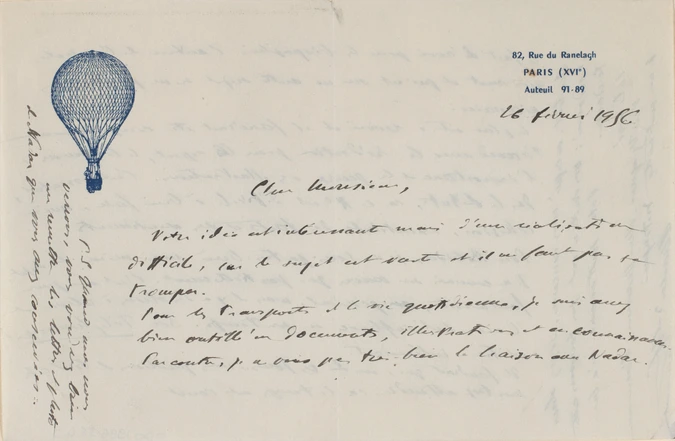 82, Rue du Ranelagh
PARIS (XVIᵉ)
Auteuil 91-89
26 février 1956
Cher Monsieur,
Votre idée est intéressante mais d'une réalisation
difficile, car le sujet est vaste et il ne faut pas se
tromper.
Pour les transports et la vie quotidienne, je suis assez
bien outillé en documents, illustrations et en connaissances.
Par contre, je ne vois pas très bien la liaison avec Nadar.
P.S. Quand nous nous
verrons, vous voudrez bien
me remettre les lettres et photos
de Nadar que vous avez conservées..